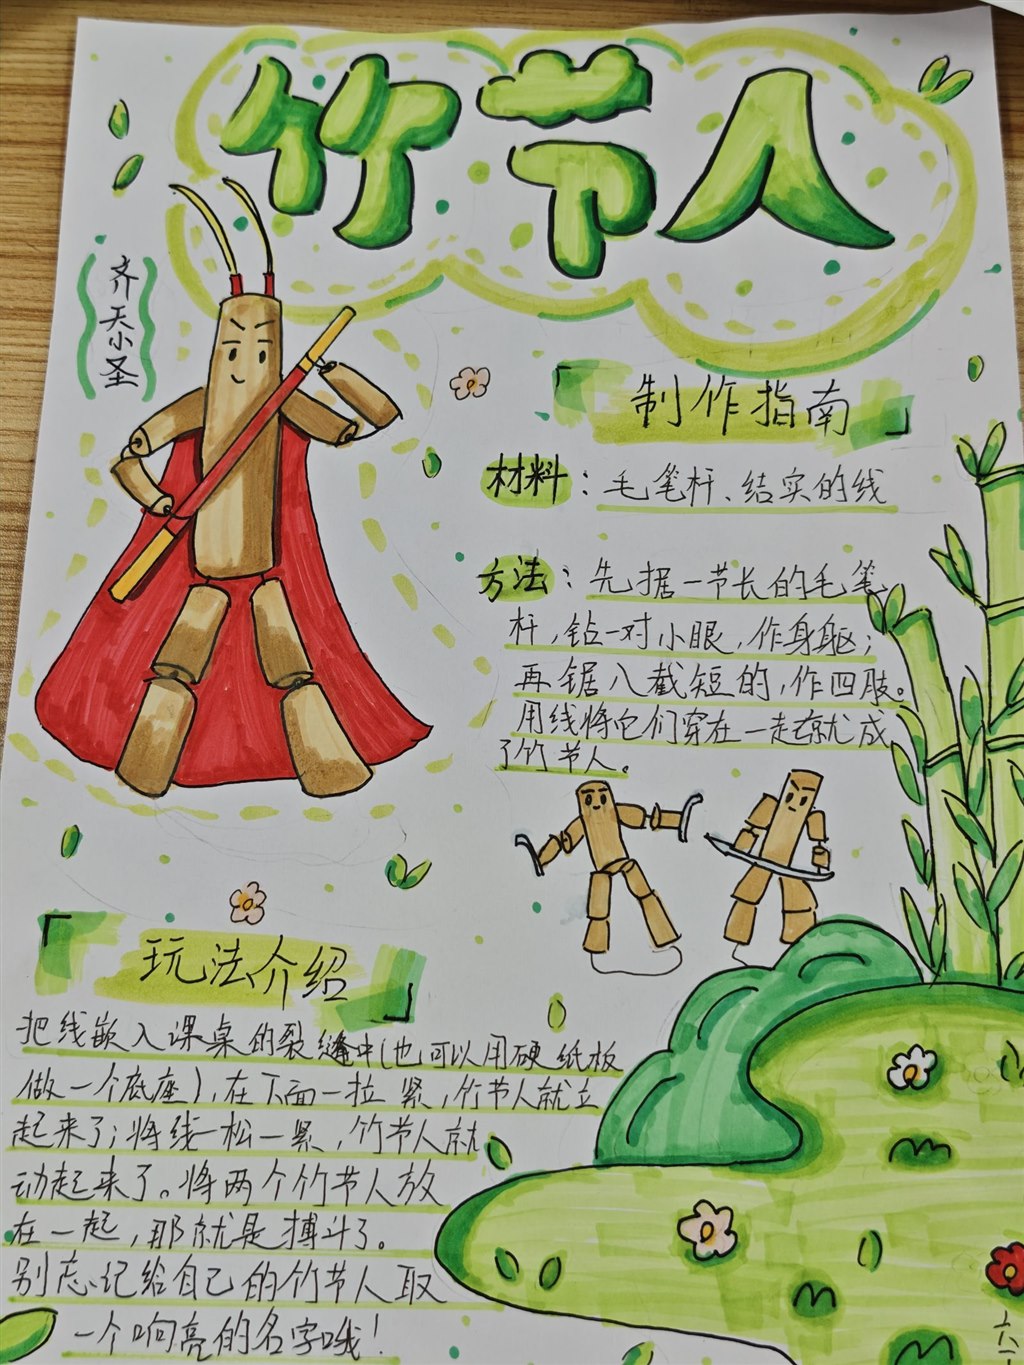 竹节人
齐天小圣
制作指南
材料：毛笔杆、结实的线
方法：先据一节长的毛笔
杆，钻一对小眼，作身躯；
再锯八截短的，作四肢。
用线将它们穿在一起就成
了竹节人。
玩法介绍
把线嵌入课桌的裂缝中（也可以用硬纸板
做一个底座），在下面一拉紧，竹节人就立
起来了；将线一松一紧，竹节人就
动起来了。将两个竹节人放
在一起，那就是搏斗了。
别忘记给自己的竹节人取
一个响亮的名字哦！
六